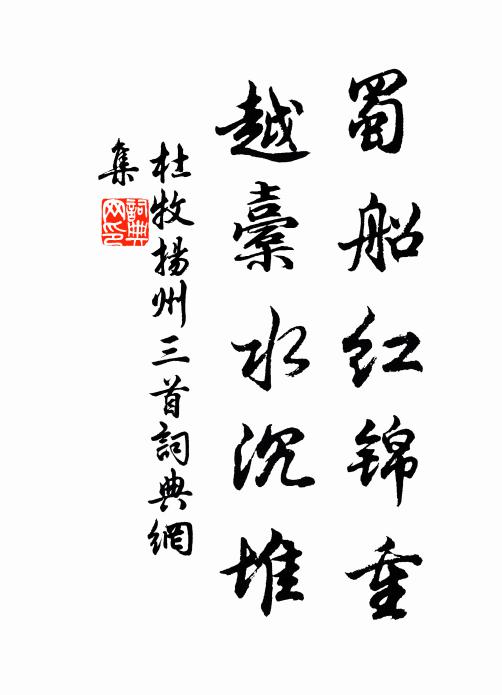 蜀船红锦重
越橐水沉堆
杜牧揚州三首詞典網
集
詞典
网印